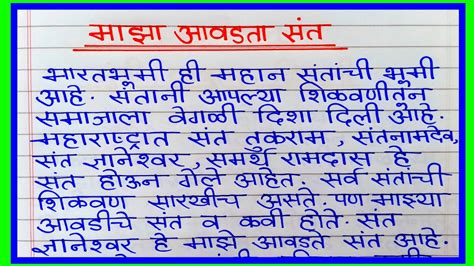 माझा आवडता संत
भारतभूमी ही महान संतांची भूमी
आहे. संतानी आपल्या शिकवणीतून
समाजाला वेगळी दिशा दिली आहे.
महाराष्ट्रात संत तुकाराम, संतनामदेव,
संत ज्ञानेश्वर, समर्थ रामदास हे
संत होऊन गेले आहेत. सर्व संतांची
शिकवण सारखीच असते. पण माझ्या
आवडीचे संत व कवी होते. संत
ज्ञानेश्वर हे माझे आवडते संत आहे.